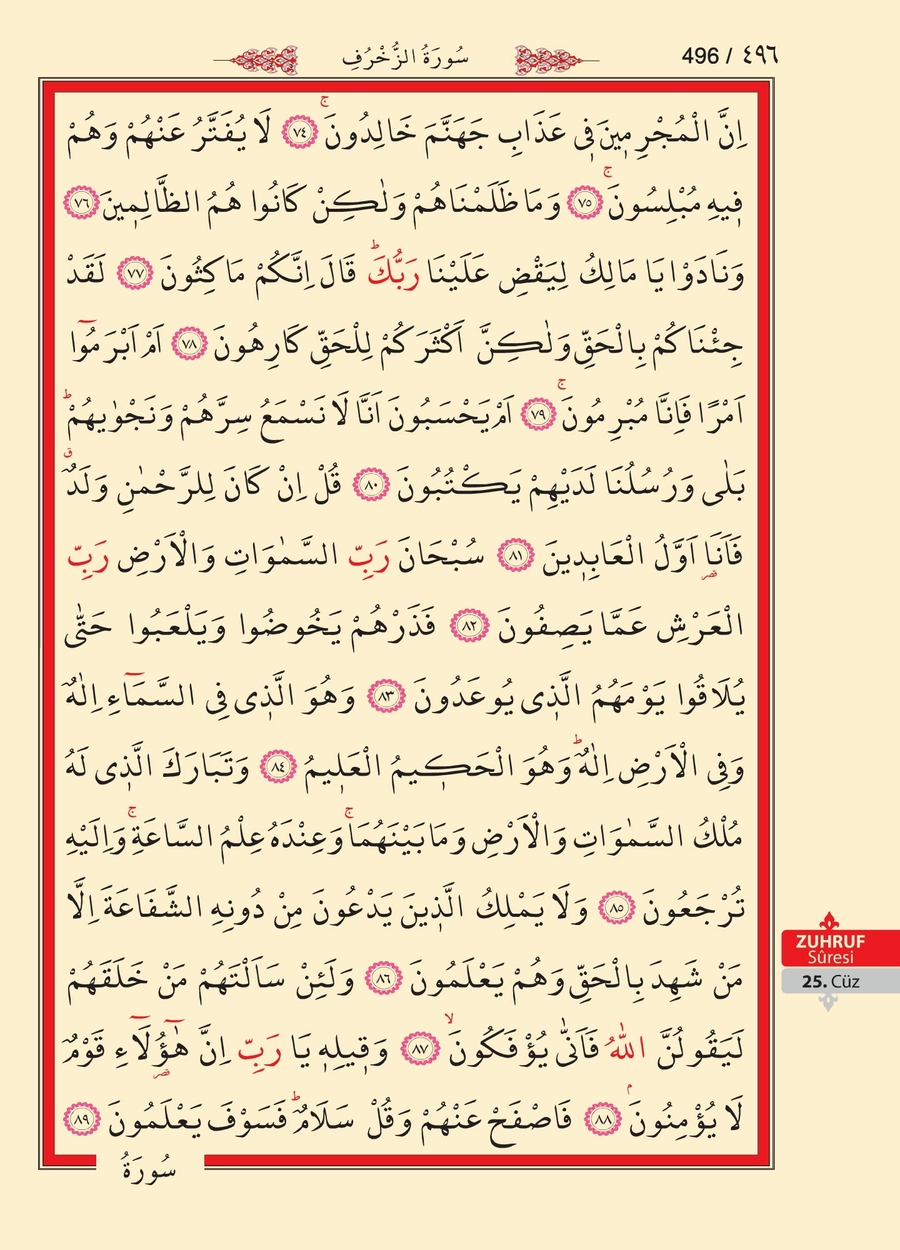 سُورَةُ الزُّخْرُفِ
496 / ٤٩٦
اِنَّ الْمُجْرِمٖينَ فٖى عَذَابِ جَهَنَّمَ خَالِدُونَۚ ﴿٧٤﴾ لَا يُفَتَّرُ عَنْهُمْ وَهُمْ
فٖيهِ مُبْلِسُونَۚ ﴿٧٥﴾ وَمَا ظَلَمْنَاهُمْ وَلٰكِنْ كَانُوا هُمُ الظَّالِمٖينَ ﴿٧٦﴾
وَنَادَوْا يَا مَالِكُ لِيَقْضِ عَلَيْنَا رَبُّكَؕ قَالَ اِنَّكُمْ مَاكِثُونَ ﴿٧٧﴾ لَقَدْ
جِئْنَاكُمْ بِالْحَقِّ وَلٰكِنَّ اَكْثَرَكُمْ لِلْحَقِّ كَارِهُونَ ﴿٧٨﴾ اَمْ اَبْرَمُٓوا
اَمْرًا فَاِنَّا مُبْرِمُونَۚ ﴿٧٩﴾ اَمْ يَحْسَبُونَ اَنَّا لَا نَسْمَعُ سِرَّهُمْ وَنَجْوٰيهُمْؕ
بَلٰى وَرُسُلُنَا لَدَيْهِمْ يَكْتُبُونَ ﴿٨٠﴾ قُلْ اِنْ كَانَ لِلرَّحْمٰنِ وَلَدٌ ق
فَاَنَا۬ اَوَّلُ الْعَابِدٖينَ ﴿٨١﴾ سُبْحَانَ رَبِّ السَّمٰوَاتِ وَالْاَرْضِ رَبِّ
الْعَرْشِ عَمَّا يَصِفُونَ ﴿٨٢﴾ فَذَرْهُمْ يَخُوضُوا وَيَلْعَبُوا حَتّٰى
يُلَاقُوا يَوْمَهُمُ الَّذٖى يُوعَدُونَ ﴿٨٣﴾ وَهُوَ الَّذٖى فِى السَّمَٓاءِ اِلٰهٌ
وَفِى الْاَرْضِ اِلٰهٌؕ وَهُوَ الْحَكٖيمُ الْعَلٖيمُ ﴿٨٤﴾ وَتَبَارَكَ الَّذٖى لَهُ
مُلْكُ السَّمٰوَاتِ وَالْاَرْضِ وَمَا بَيْنَهُمَاۚ وَعِنْدَهُ عِلْمُ السَّاعَةِۚ وَاِلَيْهِ
تُرْجَعُونَ ﴿٨٥﴾ وَلَا يَمْلِكُ الَّذٖينَ يَدْعُونَ مِنْ دُونِهِ الشَّفَاعَةَ اِلَّا
مَنْ شَهِدَ بِالْحَقِّ وَهُمْ يَعْلَمُونَ ﴿٨٦﴾ وَلَئِنْ سَاَلْتَهُمْ مَنْ خَلَقَهُمْ
لَيَقُولُنَّ اللّٰهُ فَاَنّٰى يُؤْفَكُونَۙ ﴿٨٧﴾ وَقٖيلِهٖ يَا رَبِّ اِنَّ هٰٓؤُ۬لَٓاءِ قَوْمٌ
لَا يُؤْمِنُونَۢ ﴿٨٨﴾ فَاصْفَحْ عَنْهُمْ وَقُلْ سَلَامٌؕ فَسَوْفَ يَعْلَمُونَ ﴿٨٩﴾
سُورَةُ
ZUHRUF
Sûresi
25. Cüz